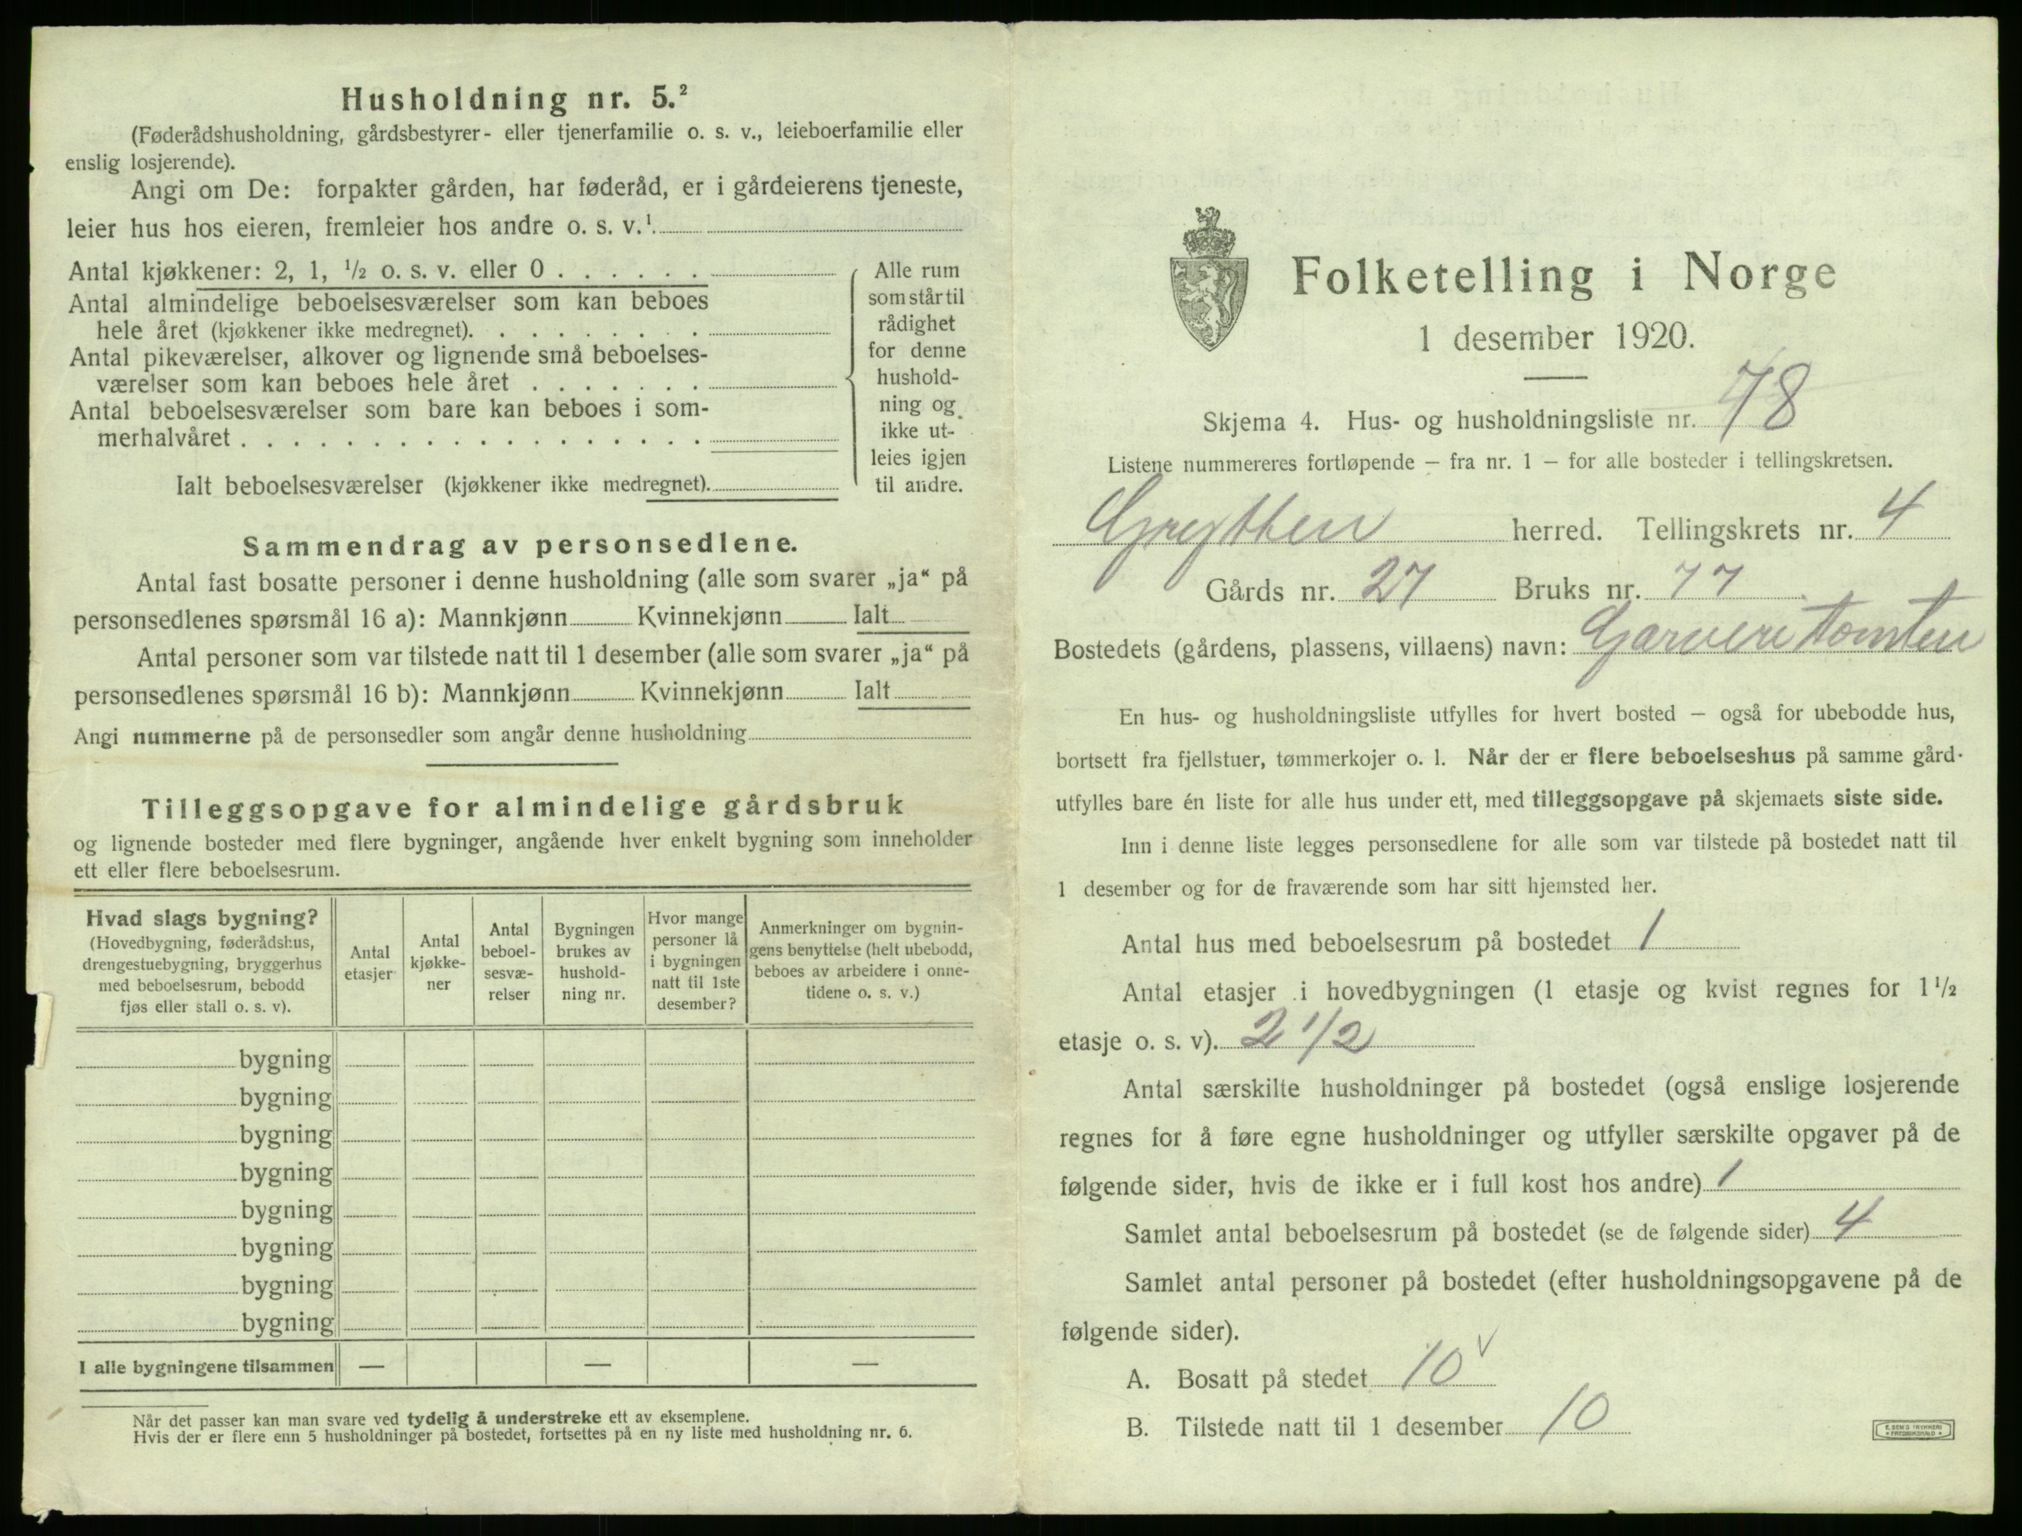 Husholdning nr. 5.²
(Føderådshusholdning, gårdsbestyrer- eller tjenerfamilie o. s. v., leieboerfamilie eller
enslig losjerende).
Angi om De: forpakter gården, har føderåd, er i gårdeierens tjeneste,
leier hus hos eieren, fremleier hos andre o. s. v.¹
Antal kjøkkener: 2, 1, ½ o. s. v. eller 0 . . . . . .
Antal almindelige beboelsesværelser som kan beboes
hele året (kjøkkener ikke medregnet). . . . . . . . .
Antal pikeværelser, alkover og lignende små beboelses-
værelser som kan beboes hele året . . . . . . .
Antal beboelsesværelser som bare kan beboes i som-
merhalvåret . . . . . . . . . . . . . . . . . .
Ialt beboelsesværelser (kjøkkener ikke medregnet).
Alle rum
som står til
rådighet
for denne
hushold-
ning og
ikke ut-
leies igjen
til andre.
Sammendrag av personsedlene.
Antal fast bosatte personer i denne husholdning (alle som svarer „ja“ på
personsedlenes spørsmål 16 a): Mannkjønn Kvinnekjønn Ialt
Antal personer som var tilstede natt til 1 desember (alle som svarer „ja“ på
personsedlenes spørsmål 16 b): Mannkjønn Kvinnekjønn Ialt
Angi nummerne på de personsedler som angår denne husholdning
Tilleggsopgave for almindelige gårdsbruk
og lignende bosteder med flere bygninger, angående hver enkelt bygning som inneholder
ett eller flere beboelsesrum.
Hvad slags bygning?
(Hovedbygning, føderådshus,
drengestuebygning, bryggerhus
med beboelsesrum, bebodd
fjøs eller stall o. s. v).
Antal
etasjer
Antal
kjøkke-
ner
Antal
beboel-
sesvæ-
relser
Bygningen
brukes av
hushold-
ning nr.
Hvor mange
personer lå
i bygningen
natt til 1ste
desember?
Anmerkninger om bygnin-
gens benyttelse (helt ubebodd,
beboes av arbeidere i onne-
tidene o. s. v.)
bygning
bygning
bygning
bygning
bygning
bygning
bygning
bygning
I alle bygningene tilsammen — — —
Når det passer kan man svare ved tydelig å understreke ett av eksemplene.
Hvis der er flere enn 5 husholdninger på bostedet, fortsettes på en ny liste med husholdning nr. 6.
Folketelling i Norge
1 desember 1920.
Skjema 4. Hus- og husholdningsliste nr. 78
Listene nummereres fortløpende – fra nr. 1 – for alle bosteder i tellingskretsen.
Grytten herred. Tellingskrets nr. 4
Gårds nr. 27 Bruks nr. 77
Bostedets (gårdens, plassens, villaens) navn: Garveritomten
En hus- og husholdningsliste utfylles for hvert bosted – også for ubebodde hus,
bortsett fra fjellstuer, tømmerkojer o. l. Når der er flere beboelseshus på samme gård
utfylles bare én liste for alle hus under ett, med tilleggsopgave på skjemaets siste side.
Inn i denne liste legges personsedlene for alle som var tilstede på bostedet natt til
1 desember og for de fraværende som har sitt hjemsted her.
Antal hus med beboelsesrum på bostedet 1
Antal etasjer i hovedbygningen (1 etasje og kvist regnes for 1½
etasje o. s. v). 2 1/2
Antal særskilte husholdninger på bostedet (også enslige losjerende
regnes for å føre egne husholdninger og utfyller særskilte opgaver på de
følgende sider, hvis de ikke er i full kost hos andre) 1
Samlet antal beboelsesrum på bostedet (se de følgende sider) 4
Samlet antal personer på bostedet (efter husholdningsopgavene på de
følgende sider).
A. Bosatt på stedet 10 v
B. Tilstede natt til 1 desember 10